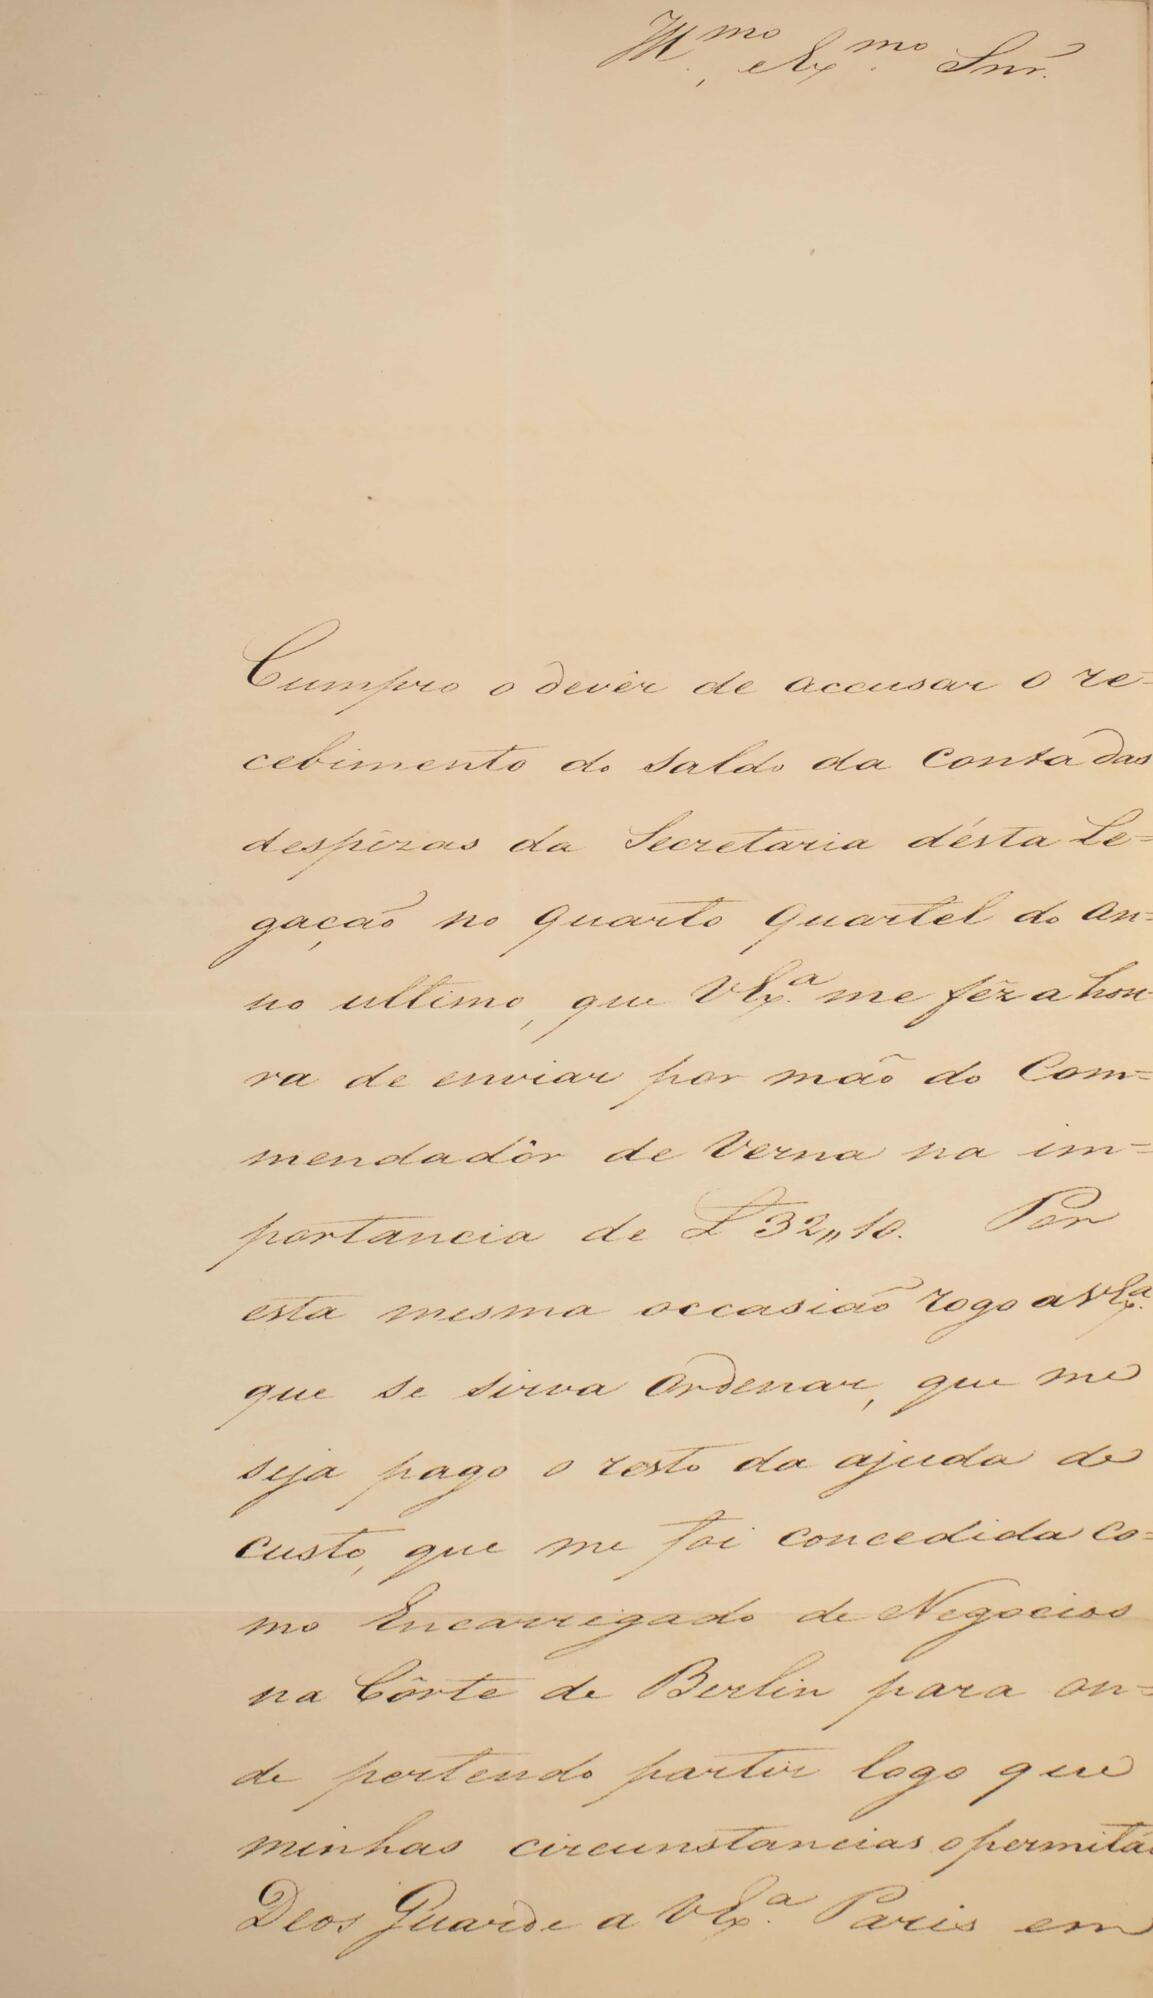 Ill.mo e Ex.mo Snr.
Cumpro o devêr de accusar o re=
cebimento do saldo da conta das
despêzas da Secretaria désta Le=
gação no quarto quartel do an=
no ultimo, que V Ex.a me fêz a hon=
ra de enviar por mão do Com=
mendadôr de Verna na im=
portancia de £ 32,,10. Por
esta mesma occasião rogo a V Ex.a
que se sirva ordenar, que me
seja pago o resto da ajuda de
custo, que me foi concedida co=
mo Encarregado de Negocios
na Côrte de Berlin para on=
de pertendo partir logo que
minhas circunstancias o permitão
Deos Guarde a V Ex.a Paris em